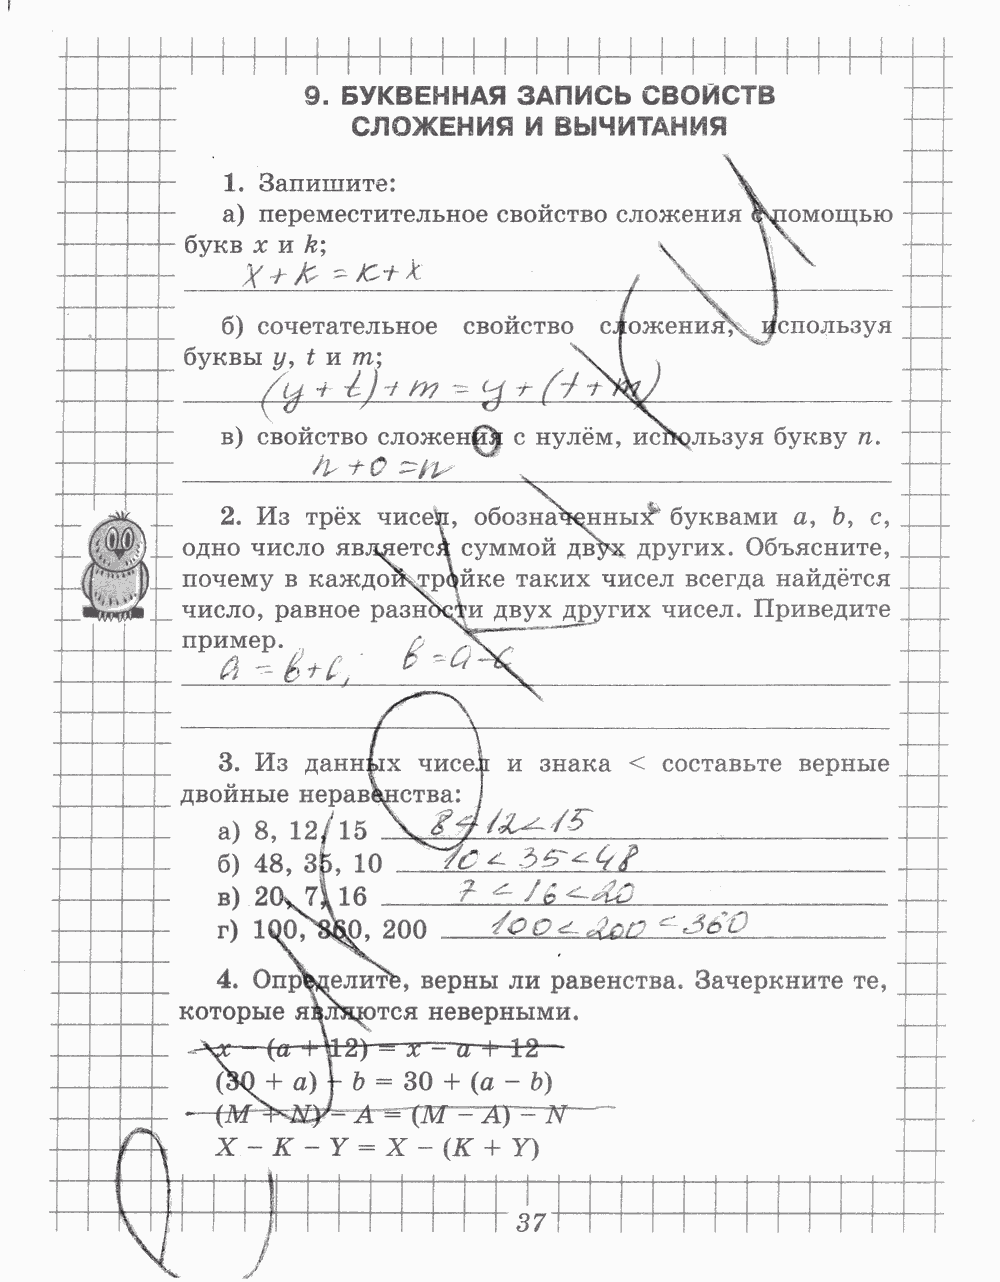 9. БУКВЕННАЯ ЗАПИСЬ СВОЙСТВ
СЛОЖЕНИЯ И ВЫЧИТАНИЯ
1. Запишите:
а) переместительное свойство сложения с помощью
букв x и k;
x + k = k + x
б) сочетательное свойство сложения, используя
буквы y, t и m;
(y + t) + m = y + (t + m)
в) свойство сложения с нулём, используя букву n.
n + 0 = n
2. Из трёх чисел, обозначенных буквами a, b, c,
одно число является суммой двух других. Объясните,
почему в каждой тройке таких чисел всегда найдётся
число, равное разности двух других чисел. Приведите
пример.
a = b + c, b = a - c
3. Из данных чисел и знака < составьте верные
двойные неравенства:
а) 8, 12, 15 8 < 12 < 15
б) 48, 35, 10 10 < 35 < 48
в) 20, 7, 16 7 < 16 < 20
г) 100, 360, 200 100 < 200 < 360
4. Определите, верны ли равенства. Зачеркните те,
которые являются неверными.
x − (a + 12) = x − a + 12
(30 + a) − b = 30 + (a − b)
(M + N) − A = (M − A) − N
X − K − Y = X − (K + Y)
37